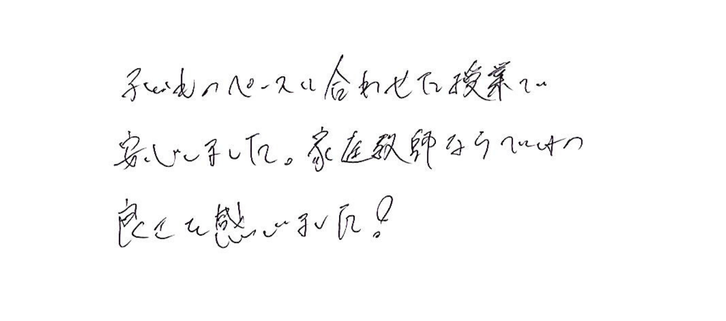 子どものペースに合わせた授業で
安心しました。家庭教師ならではの
良さを感じました!